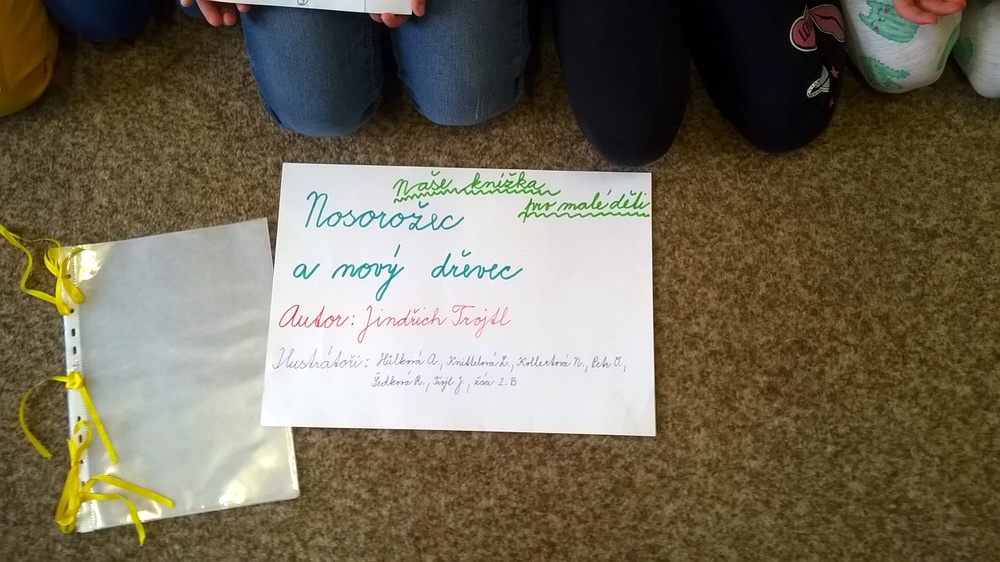 Naše knížka
pro malé děti
Nosorožec
a nový dřevec
Autor: Jindřich Trojtl
Ilustrátoři: Hůlková A., Knittelová L., Kollertová N., Petr O.,
Šedková R., Trojtl J., žáci 2.B